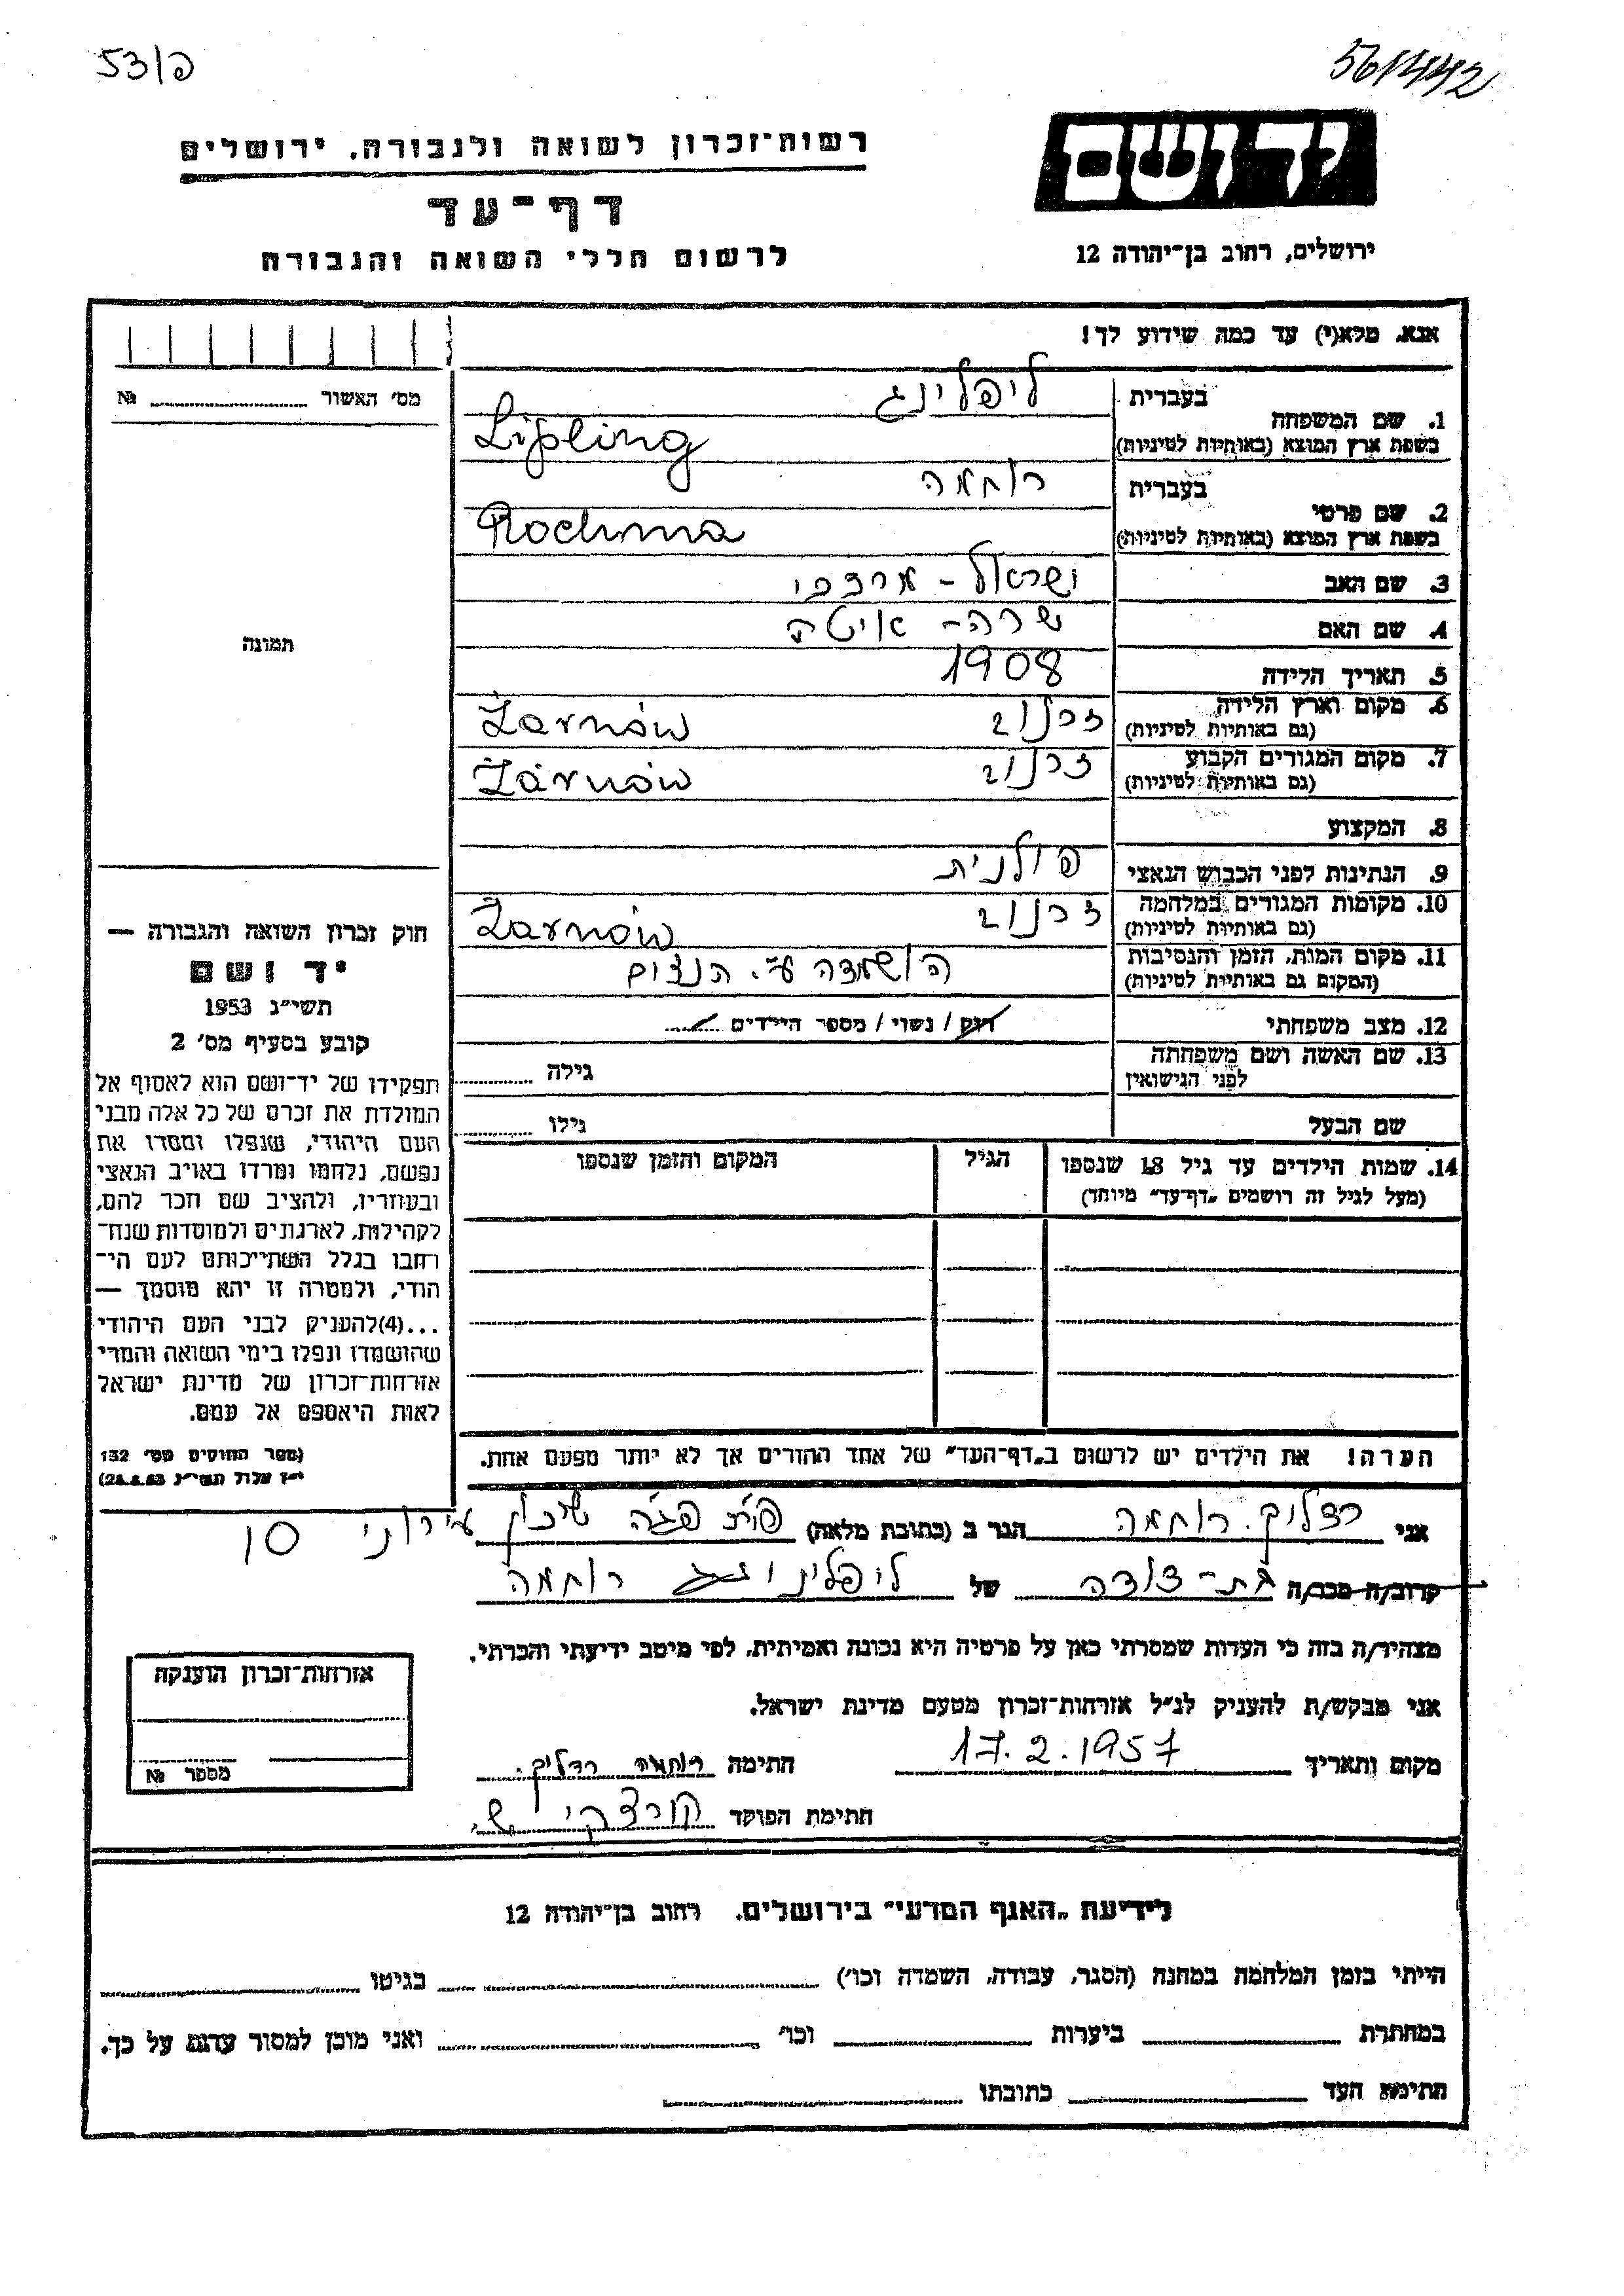 53/פ
56/442
רשות־זכרון לשואה ולגבורה, ירושלים
דף־עד
לרשום חללי השואה והגבורה
יד ושם
ירושלים, רחוב בן־יהודה 12
אנא, מלא(י) עד כמה שידוע לך!
מס׳ האשור № 
תמונה
חוק זכרון השואה והגבורה —
יד ושם
תשי״ג 1953
קובע בסעיף מס׳ 2
תפקידו של יד־ושם הוא לאסוף אל
המולדת את זכרם של כל אלה מבני
העם היהודי, שנפלו ומסרו את
נפשם, נלחמו ומרדו באויב הנאצי
ובעוזריו, ולהציב שם וזכר להם,
לקהילות, לארגונים ולמוסדות שנח־
רחבו בגלל השתייכותם לעם הי־
הודי, ולמטרה זו יהא מוסמך —
...(4)להעניק לבני העם היהודי
שהושמדו ונפלו בימי השואה והמרי
אזרחות־זכרון של מדינת ישראל
לאות היאספם אל עמם.
(ספר החוקים מס׳ 132
י״ז אלול תשי״ג 28.8.53)
1. שם המשפחה בעברית ליפלינג
בשפת ארץ המוצא (באותיות לטיניות) Lipling
2. שם פרטי בעברית רוחמה
בשפת ארץ המוצא (באותיות לטיניות) Rochma
3. שם האב ישראל - מרדכי
4. שם האם שרה - איטה
5. תאריך הלידה 1908
6. מקום וארץ הלידה (גם באותיות לטיניות) זרנוב Żarnów
7. מקום המגורים הקבוע (גם באותיות לטיניות) זרנוב Żarnów
8. המקצוע
9. הנתינות לפני הכבוש הנאצי פולנית
10. מקומות המגורים במלחמה (גם באותיות לטיניות) זרנוב Żarnów
11. מקום המות, הזמן והנסיבות (המקום גם באותיות לטיניות) הושמדה ע״י הנצים
12. מצב משפחתי רווק / נשוי / מספר הילדים
13. שם האשה ושם משפחתה לפני הנישואין גילה
שם הבעל גילו
14. שמות הילדים עד גיל 18 שנספו הגיל המקום והזמן שנספו
(מעל לגיל זה רושמים „דף־עד״ מיוחד)
הערה! את הילדים יש לרשום ב„דף־העד״ של אחד ההורים אך לא יותר מפעם אחת.
אני רדליך רוחמה הגר ב (כתובת מלאה) שיכון עירוני 10
קרוב/ה מכר/ה בת - דודה של ליפלינג רוחמה
מצהיר/ה בזה כי העדות שמסרתי כאן על פרטיה היא נכונה ואמיתית, לפי מיטב ידיעתי והכרתי.
אני מבקש/ת להעניק לנ״ל אזרחות־זכרון מטעם מדינת ישראל.
מקום ותאריך 17.2.1957 חתימה רוחמה רדליך
חתימת הפוקד
אזרחות־זכרון הוענקה
מספר №
לידיעת „האגף המדעי״ בירושלים, רחוב בן־יהודה 12
הייתי בזמן המלחמה במחנה (הסגר, עבודה, השמדה וכו׳) בגיטו
במחתרת ביערות וכו׳ ואני מוכן למסור עדות על כך.
חתימת העד כתובתו